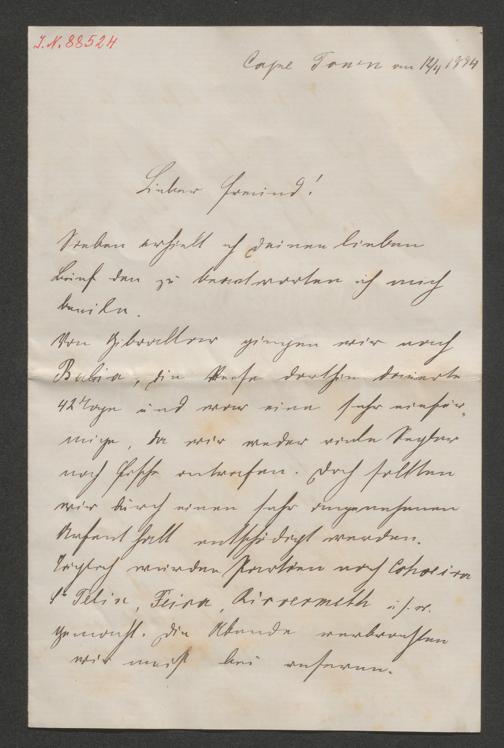 J.N. 88524
Cape Town am 12/4 1884
Lieber Freund!
Soeben erhielt ich Deinen lieben
Brief den zu beantworten ich mich
beeile.
Von Gibraltar gingen wir nach
Bahia, die Reise dorthin dauerte
42 Tage und war eine sehr einför-
mige, da wir weder viele Segler
noch Fische antrafen. Doch sollten
wir durch einen sehr angenehmen
Aufenthalt entschädigt werden.
Täglich wurden Partien nach
Felix, Feira, u.s.w.
gemacht. Die Abende verbrachten
wir meist bei